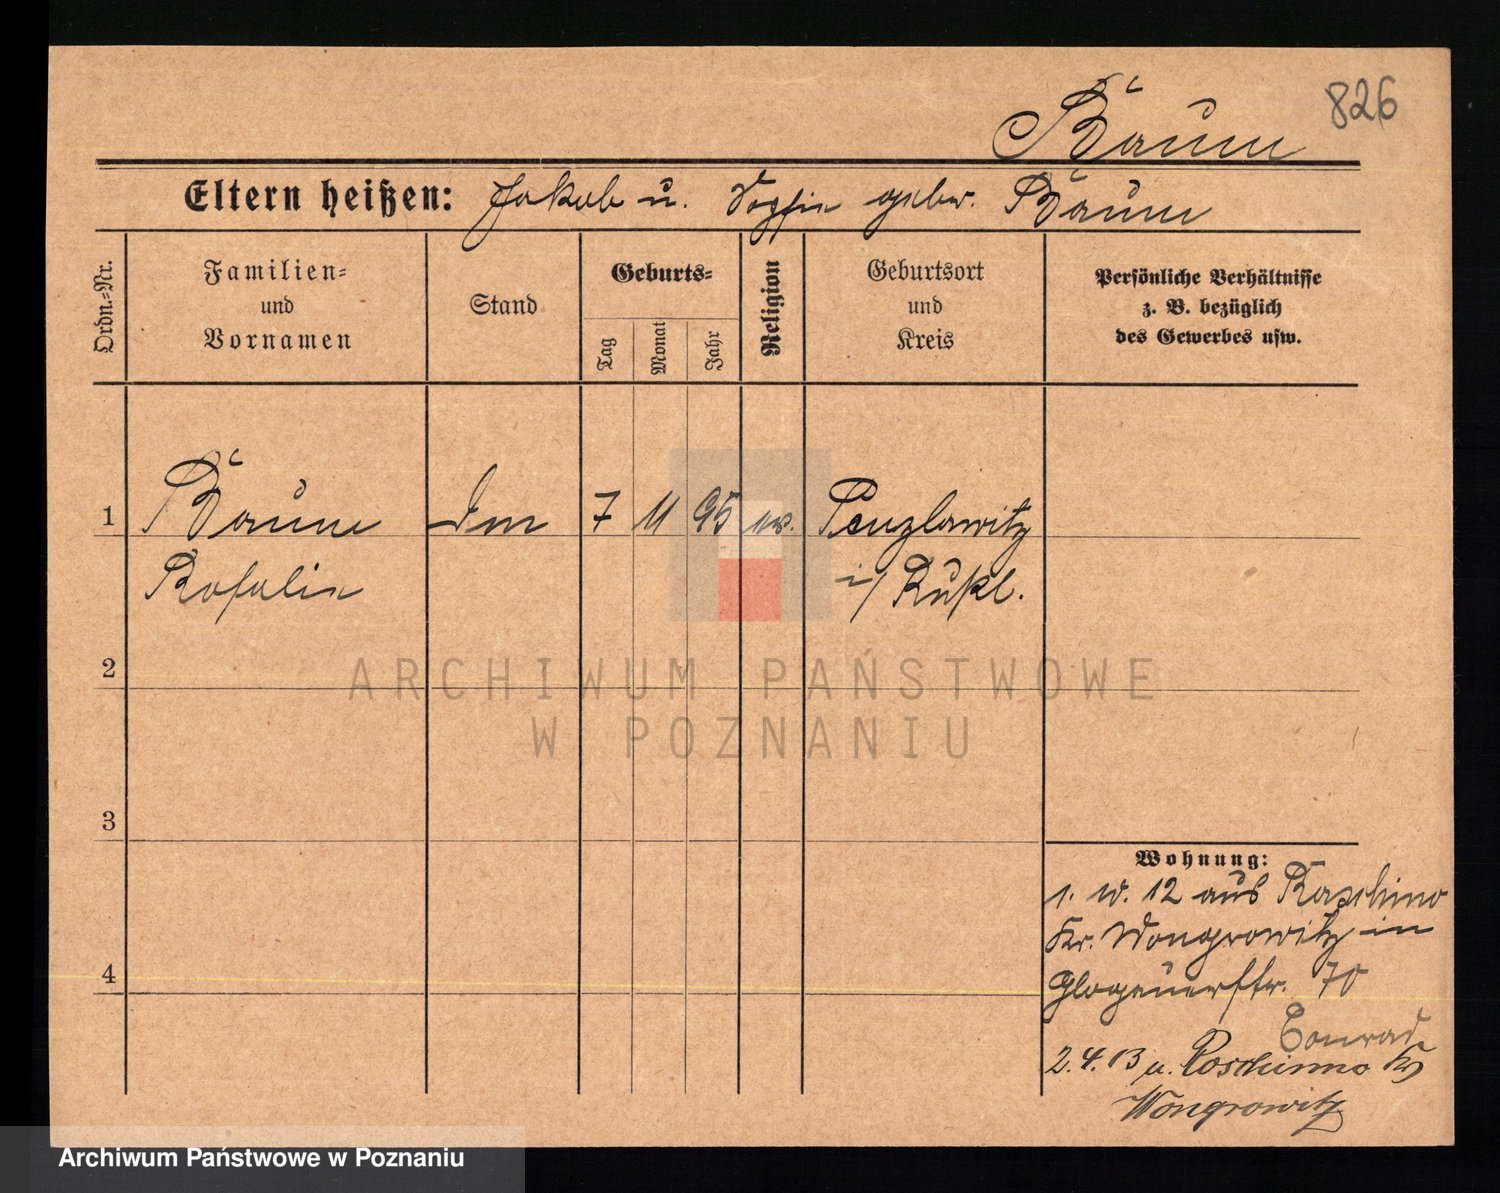 826
Baum
Eltern heißen: Jakob u. Sophie gebor. Baum
Ordn.=Nr.
Familien=
und
Vornamen
Stand
Geburts=
Tag
Monat
Jahr
Religion
Geburtsort
und
Kreis
Persönliche Verhältnisse
z. B. bezüglich
des Gewerbes usw.
1
Baum
7 11 95 ev. Penzlawitz
Rosalie
i/ Rußl.
2
3
4
Wohnung:
1. 10. 12 aus
Kr. Wongrowitz in
Glogauerstr. 70
Conrad
2. 4. 13 n. Kr
Wongrowitz
ARCHIWUM PAŃSTWOWE
W POZNANIU
Archiwum Państwowe w Poznaniu